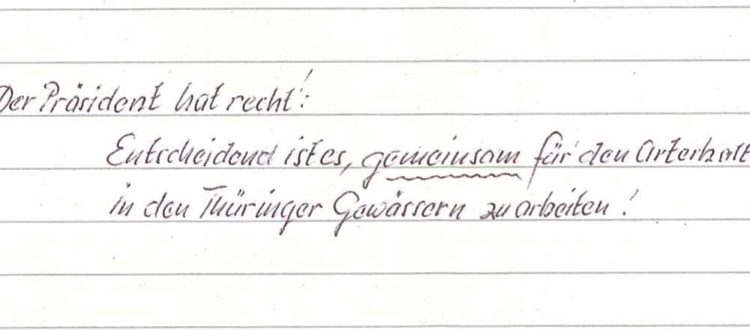 Der Präsident hat recht!:
Entscheidend ist es, gemeinsam für den Arterhalt
in den Thüringer Gewässern zu arbeiten!